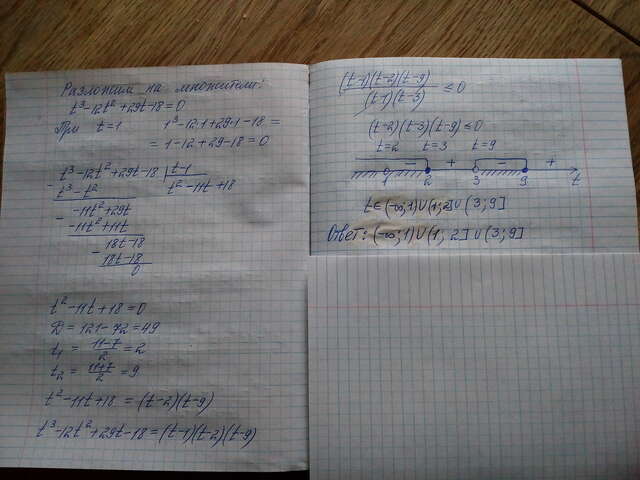 Разложим на множители:
t³-12t²+29t-18=0
При t=1 1³-12·1+29·1-18=
=1-12+29-18=0
t³-12t²+29t-18 | t-1
- t³-t² t²-11t+18
- -11t²+29t
-11t²+11t
- 18t-18
18t-18
0
t²-11t+18=0
D=121-72=49
t₁ = (11-7)/2 = 2
t₂ = (11+7)/2 = 9
t²-11t+18=(t-2)(t-9)
t³-12t²+29t-18=(t-1)(t-2)(t-9)
(t-1)(t-2)(t-9)/(t-1)(t-3) ≤0
(t-2)(t-3)(t-9)≤0
t=2 t=3 t=9
- + - +
1 2 3 9 t
t∈(-∞;1)∪(1;2]∪(3;9]
Ответ: (-∞;1)∪(1;2]∪(3;9]